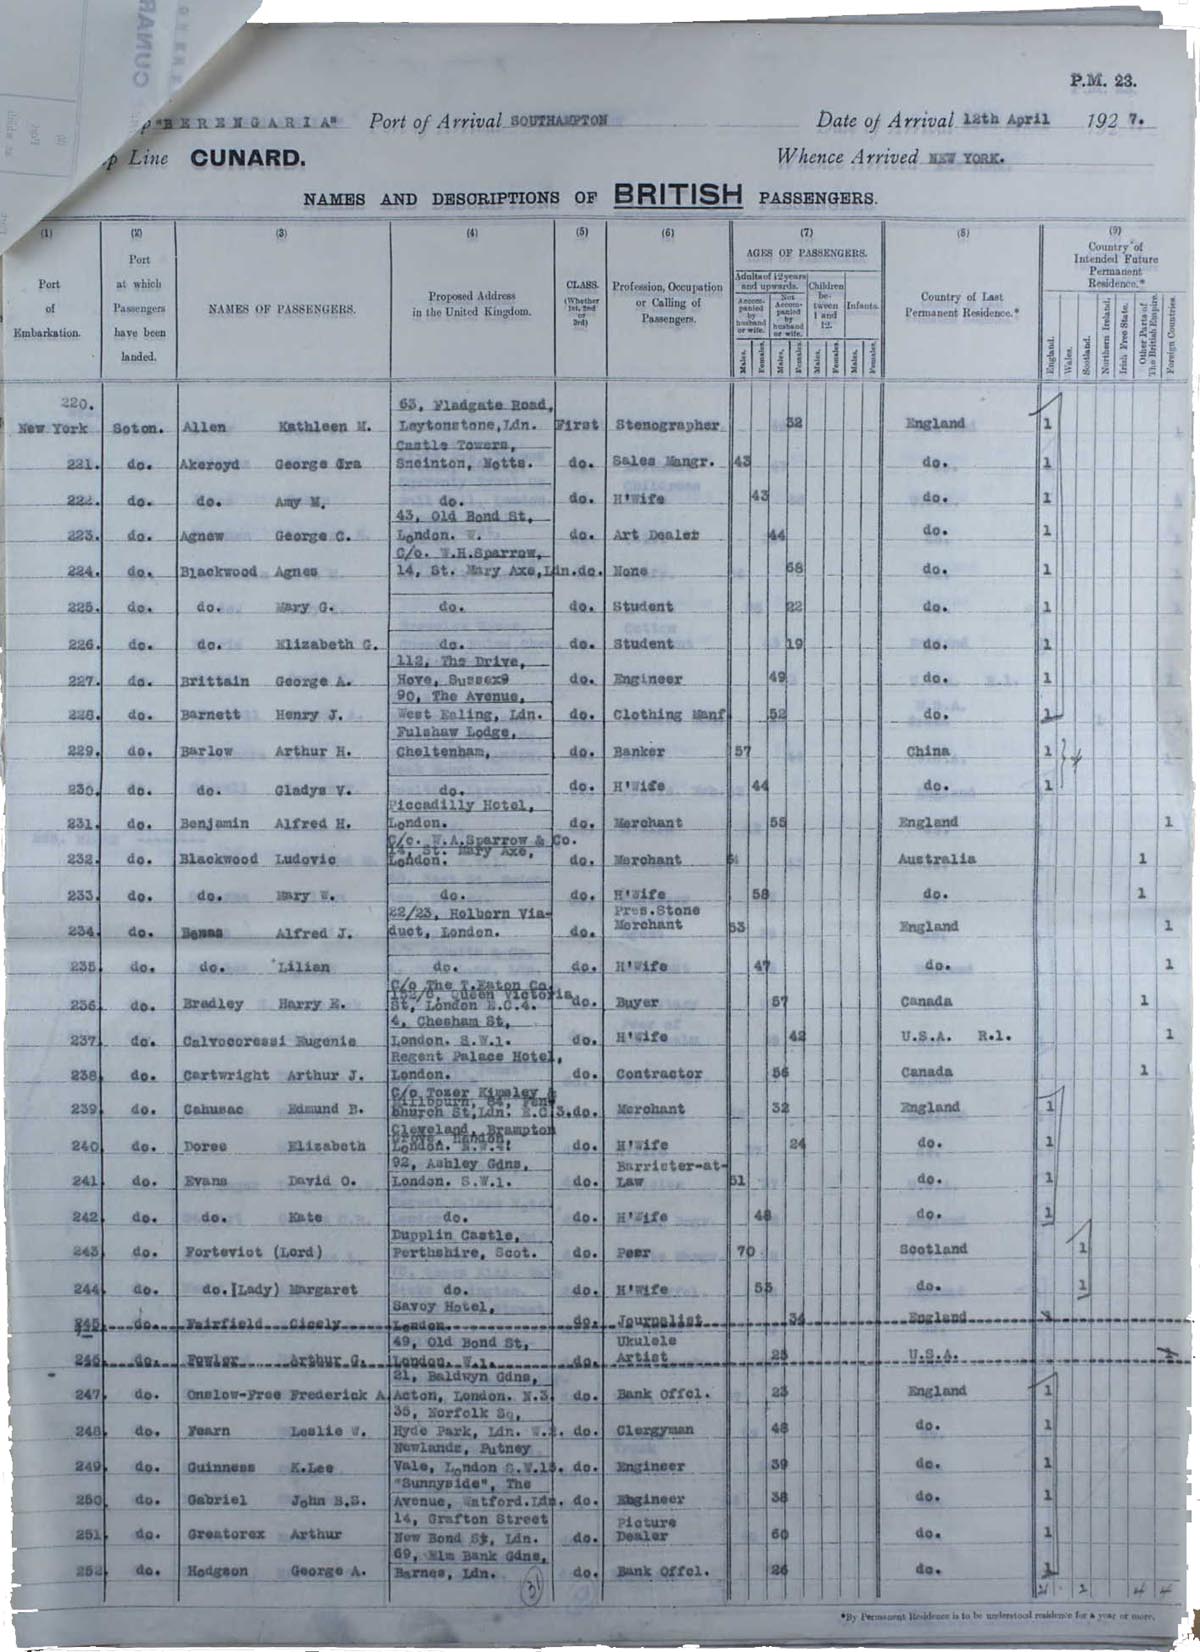 P.M. 23.
"BERENGARIA" Port of Arrival SOUTHAMPTON Date of Arrival 12th April 1927.
Line CUNARD. Whence Arrived NEW YORK.
NAMES AND DESCRIPTIONS OF BRITISH PASSENGERS.
(1) (2) (3) (4) (5) (6) (7) (8) (9)
Port of Embarkation.
Port at which Passengers have been landed.
NAMES OF PASSENGERS.
Proposed Address in the United Kingdom.
CLASS. (Whether 1st, 2nd or 3rd)
Profession, Occupation or Calling of Passengers.
AGES OF PASSENGERS.
Adults of 12 years and upwards.
Accompanied by husband or wife.
Not Accompanied by husband or wife.
Children between 1 and 12.
Infants.
Males. Females. Males. Females. Males. Females. Males. Females.
Country of Last Permanent Residence.*
Country of Intended Future Permanent Residence.*
England. Wales. Scotland. Northern Ireland. Irish Free State. Other Parts of The British Empire. Foreign Countries.
220. 63, Fladgate Road,
New York Soton. Allen Kathleen M. Leytonstone, Ldn. First Stenographer 32 England 1
Castle Towers,
221. do. Akeroyd George Ira Sneinton, Notts. do. Sales Mangr. 43 do. 1
222. do. do. Amy M. do. do. H'Wife 43 do. 1
43, Old Bond St,
223. do. Agnew George C. London. W. do. Art Dealer 44 do. 1
C/o. W.H.Sparrow,
224. do. Blackwood Agnes 14, St. Mary Axe, Ldn. do. None 68 do. 1
225. do. do. Mary G. do. do. Student 22 do. 1
226. do. do. Elizabeth G. do. do. Student 19 do. 1
112, The Drive,
227. do. Brittain George A. Hove, Sussex9 do. Engineer 49 do. 1
90, The Avenue,
228. do. Barnett Henry J. West Ealing, Ldn. do. Clothing Manf 52 do. 1
Fulshaw Lodge,
229. do. Barlow Arthur H. Cheltenham, do. Banker 57 China 1
230. do. do. Gladys V. do. do. H'Wife 44 do. 1
Piccadilly Hotel,
231. do. Benjamin Alfred H. London. do. Merchant 55 England 1
C/o. W.A.Sparrow & Co.
14, St. Mary Axe,
232. do. Blackwood Ludovic London. do. Merchant Australia 1
233. do. do. Mary W. do. do. H'Wife 58 do. 1
22/23, Holborn Via- Pres.Stone
234. do. Alfred J. duct, London. do. Merchant 53 England 1
235 do. do. Lilian do. do. H'Wife 47 do. 1
C/o The T.Eaton Co.
Queen Victoria
236 do. Bradley Harry E. St, London E.C.4. do. Buyer 57 Canada 1
4, Chesham St,
237 do. Calvocoressi Eugenie London. S.W.1. do. H'Wife 42 U.S.A. R.I. 1
Regent Palace Hotel,
238 do. Cartwright Arthur J. London. do. Contractor 56 Canada 1
C/o Tozer Kimsley &
239 do. Cahusac Edmund B. Church St, Ldn. E.C.3. do. Merchant 32 England 1
Cleveland, Brampton
Grove, Hendon
240 do. Doree Elizabeth London. N.W.4. do. H'Wife 24 do. 1
92, Ashley Gdns, Barrister-at-
241 do. Evans David O. London. S.W.1. do. Law 51 do. 1
242 do. do. Kate do. do. H'Wife 48 do. 1
Dupplin Castle,
243 do. Forteviot (Lord) Perthshire, Scot. do. Peer 70 Scotland 1
244 do. do. (Lady) Margaret do. do. H'Wife 53 do. 1
Savoy Hotel,
245 do. Fairfield Cicely London. do. Journalist 34 England
49, Old Bond St, Ukulele
246 do. Fowler Arthur G. London. W.1. do. Artist 25 U.S.A.
21, Baldwyn Gdns,
247 do. Onslow-Free Frederick A. Acton, London. N.3. do. Bank Offcl. 23 England 1
35, Norfolk Sq,
248 do. Fearn Leslie W. Hyde Park, Ldn. W.2. do. Clergyman 48 do. 1
Newlands, Putney
249 do. Guinness K.Lee Vale, London S.W.15. do. Engineer 39 do. 1
"Sunnyside", The
250 do. Gabriel John B.S. Avenue, Watford. Ldn. do. Engineer 38 do. 1
14, Grafton Street Picture
251 do. Greatorex Arthur New Bond St, Ldn. do. Dealer 60 do. 1
69, Elm Bank Gdns,
252 do. Hodgson George A. Barnes, Ldn. do. Bank Offcl. 26 do. 1
31 21 2 4 4
*By Permanent Residence is to be understood residence for a year or more.